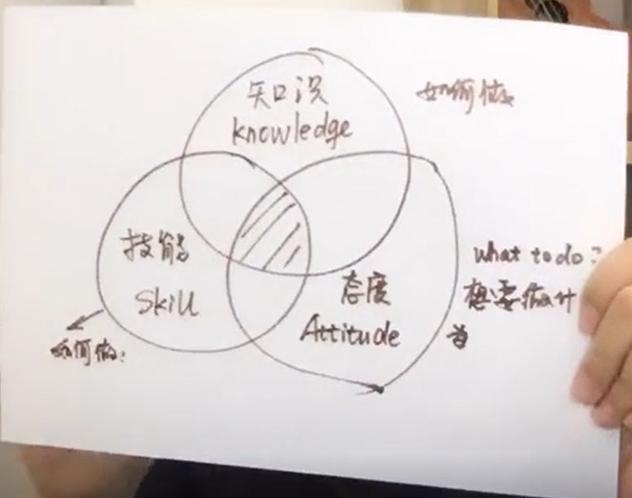 知识
knowledge
如何做
技能
Skill
如何做:
态度
Attitude
what to do?
想要做什